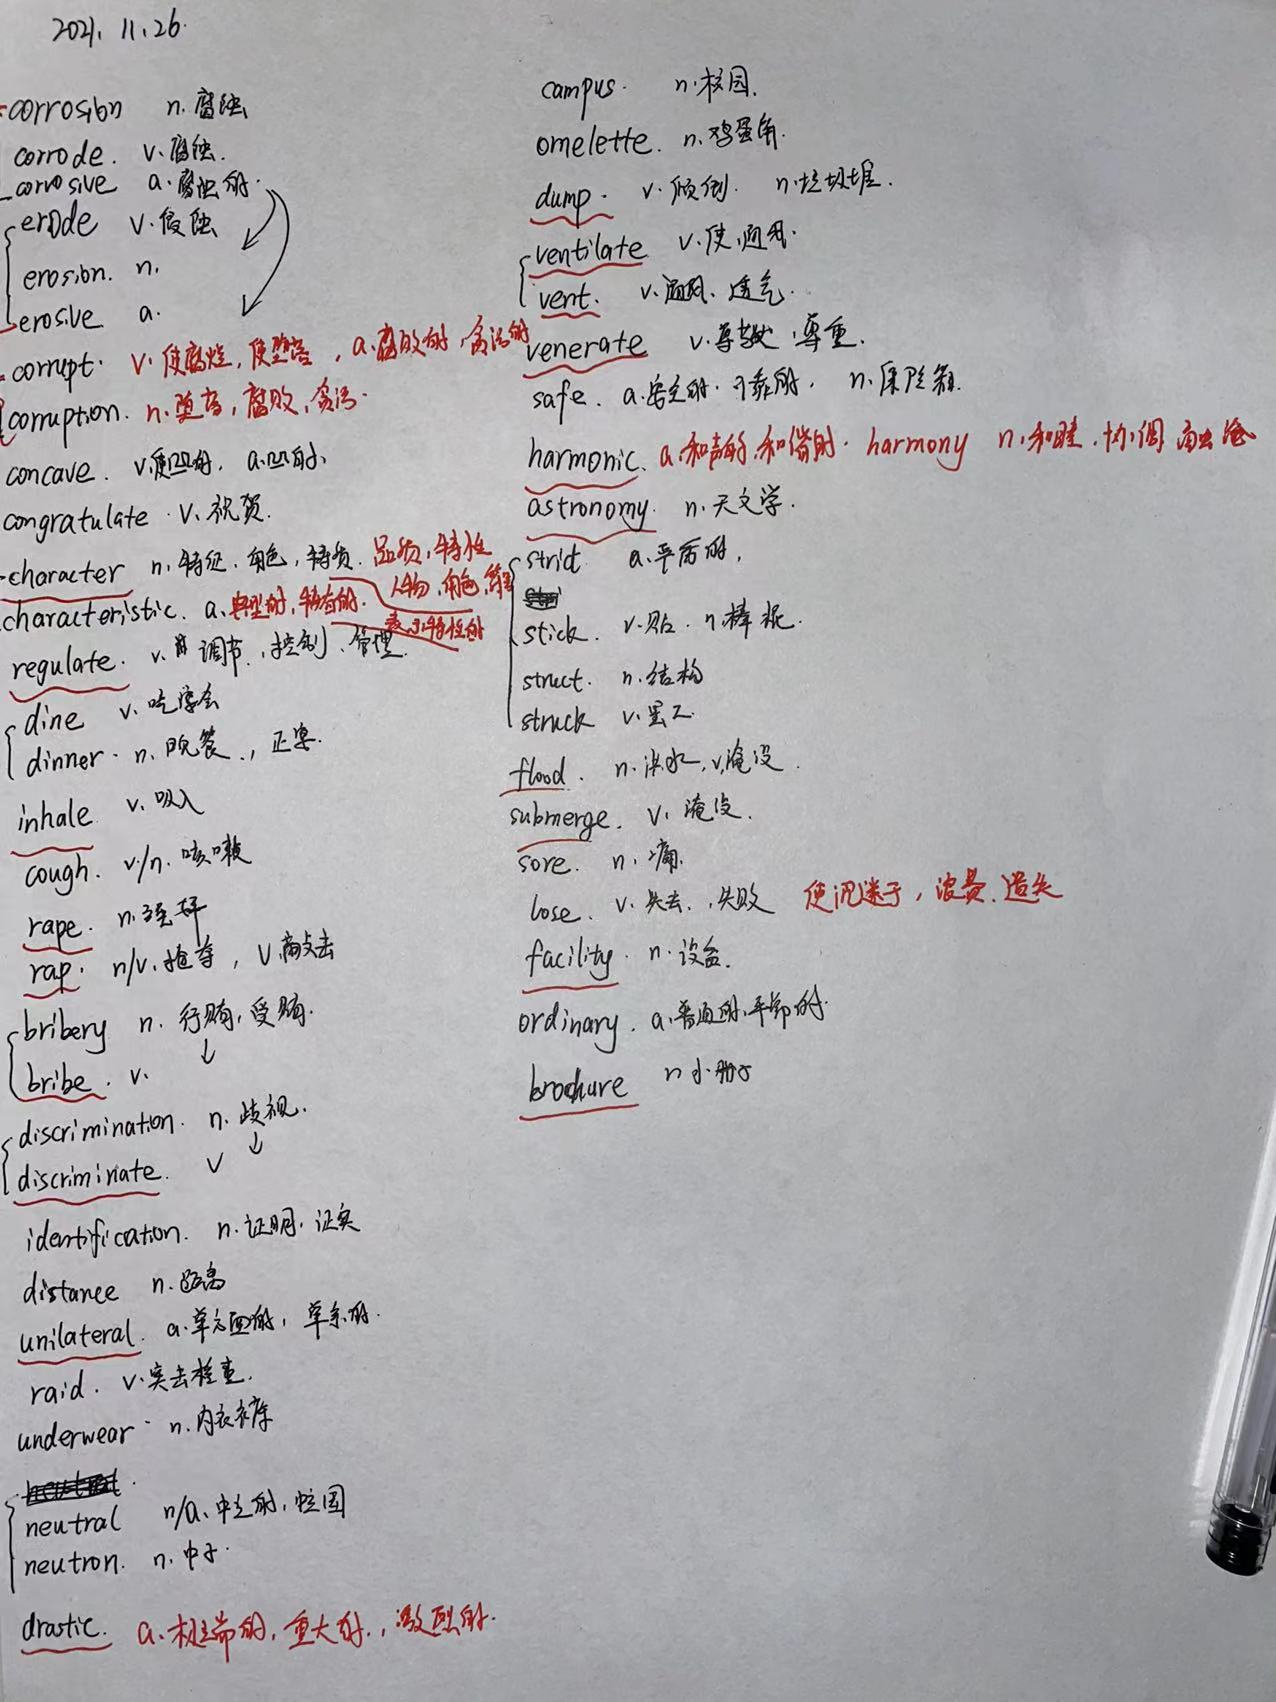 2021.11.26.
corrosion n.腐蚀
corrode. v.腐蚀.
corrosive a.腐蚀的.
erode v.侵蚀
erosion. n.
erosive a.
corrupt. v.使腐烂,使堕落,a.腐败的,贪污的
corruption. n.堕落,腐败,贪污.
concave. v.使凹的, a.凹的、
congratulate v.祝贺.
character n.特征.角色,特质.品质,特性
人物,角色,
characteristic. a.典型的,特有的.
表示特性的
regulate. v.调节、控制、管理.
dine v.吃
dinner. n.晚餐.,正宴.
inhale v.吸入
cough. v/n.咳嗽
rape. n.强奸
rap. n/v.抢夺, v.敲击
bribery n.行贿,受贿.
bribe. v. ↓
discrimination. n.歧视.
discriminate. v ↓
identification. n.证明,证实
distance n.距离
unilateral. a.单方面的,单系的.
raid. v.突击检查.
underwear n.内衣裤
neutral n/a.中立的,中立国
neutron. n.中子.
drastic. a.极端的,重大的.,激烈的.
campus. n.校园.
omelette. n.鸡蛋
dump. v.倾倒. n.垃圾堆.
ventilate v.使通风.
vent. v.通风、透气.
venerate v.尊敬,尊重.
safe. a.安全的.可靠的, n.保险箱.
harmonic. a.和声的,和谐的. harmony n.和睦.协调 融洽
astronomy. n.天文学.
strict a.严厉的,
stick. v.贴. n.棒棍.
struct. n.结构
struck v.罢工
flood. n.洪水,v.淹没.
submerge. v.淹没.
sore. n.痛.
lose. v.失去.,失败 使沉迷于,浪费.遗失
facility. n.设备.
ordinary. a.普通的,平常的.
brochure n小册子